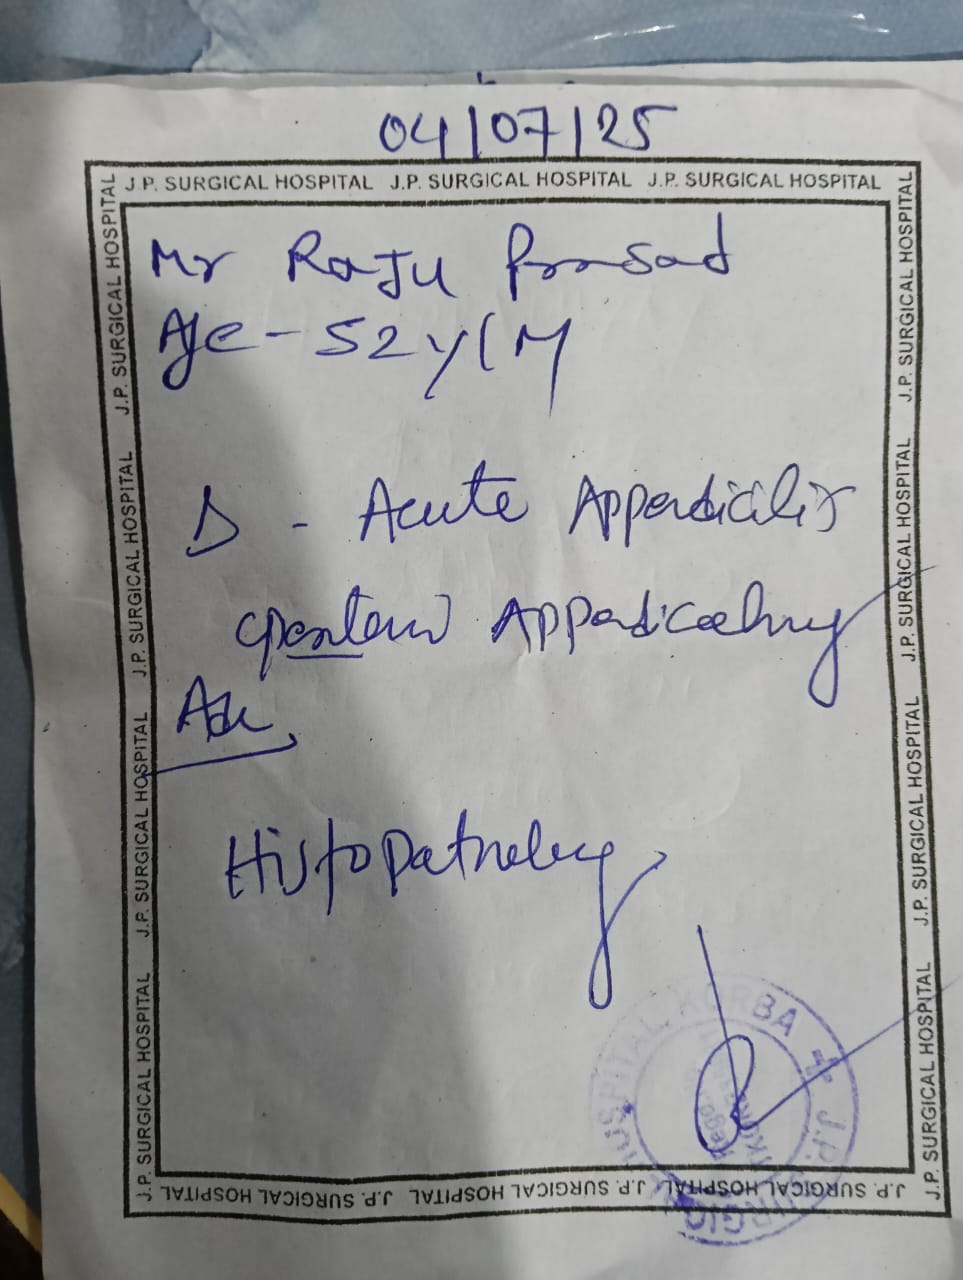 04/07/25
J.P. SURGICAL HOSPITAL J.P. SURGICAL HOSPITAL J.P. SURGICAL HOSPITAL
Mr Raju Prasad
Age - 52y/M
Δ - Acute Appendicitis
Appendicectomy
Adv
Histopathology
HOSPITAL, KORBA + J.P. SURGICAL
J.P. SURGICAL HOSPITAL J.P. SURGICAL HOSPITAL J.P. SURGICAL HOSPITAL J.P. SURGICAL HOSPITAL
J.P. SURGICAL HOSPITAL J.P. SURGICAL HOSPITAL J.P. SURGICAL HOSPITAL J.P. SURGICAL HOSPITAL
J.P. SURGICAL HOSPITAL J.P. SURGICAL HOSPITAL J.P. SURGICAL HOSPITAL